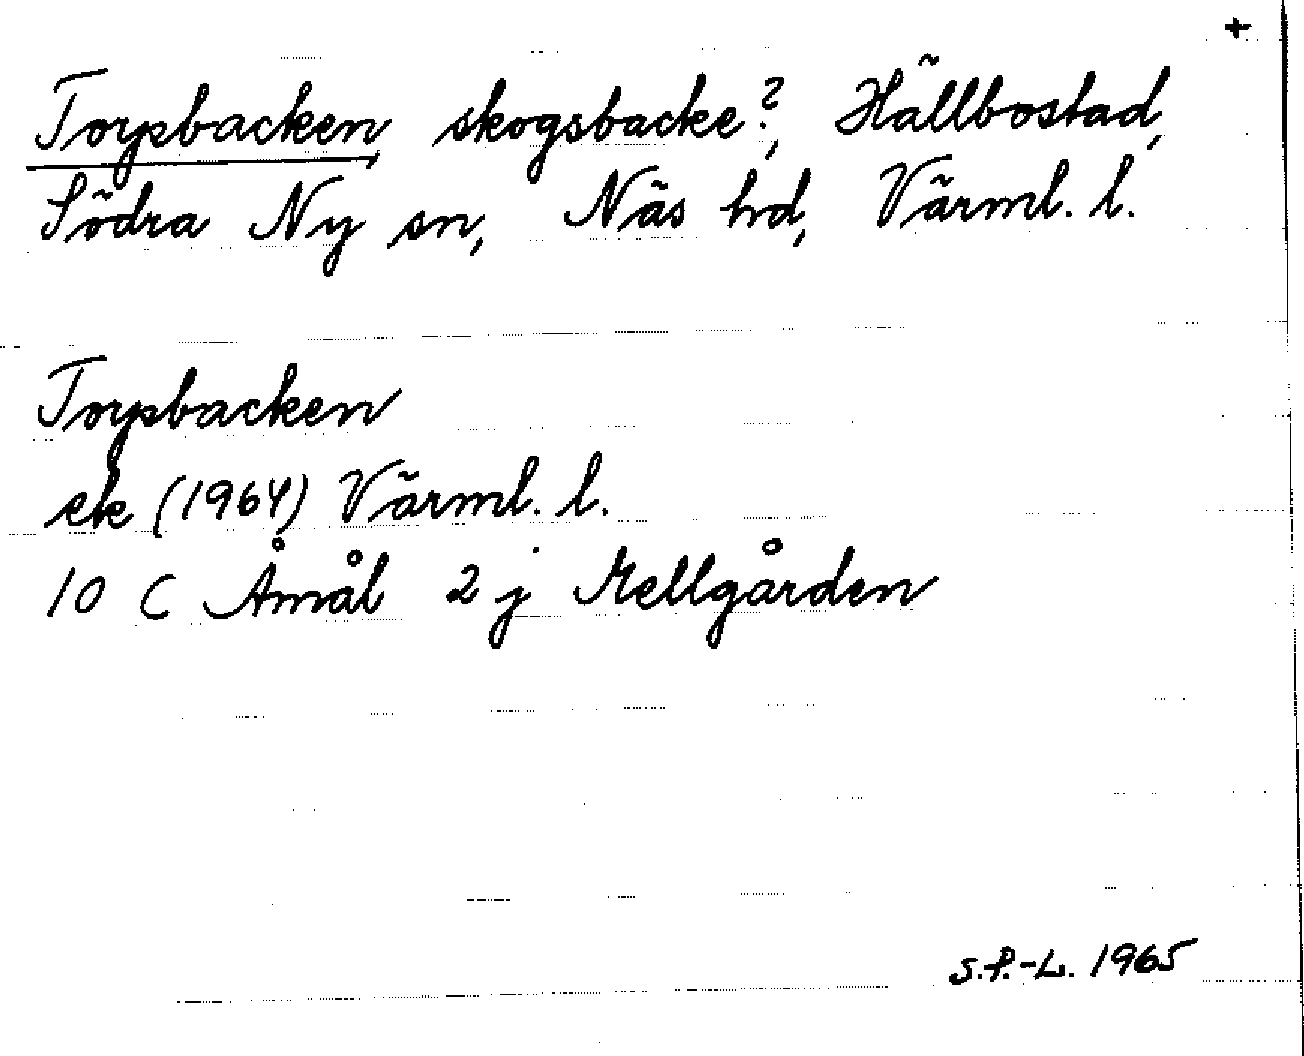 +
Torpbacken, skogsbacke?, Hällbostad,
Södra Ny sn, Näs hd, Värml. l.
Torpbacken
ek (1964) Värml. l.
10 C Åmål 2 j Mellgården
S.P.-L. 1965